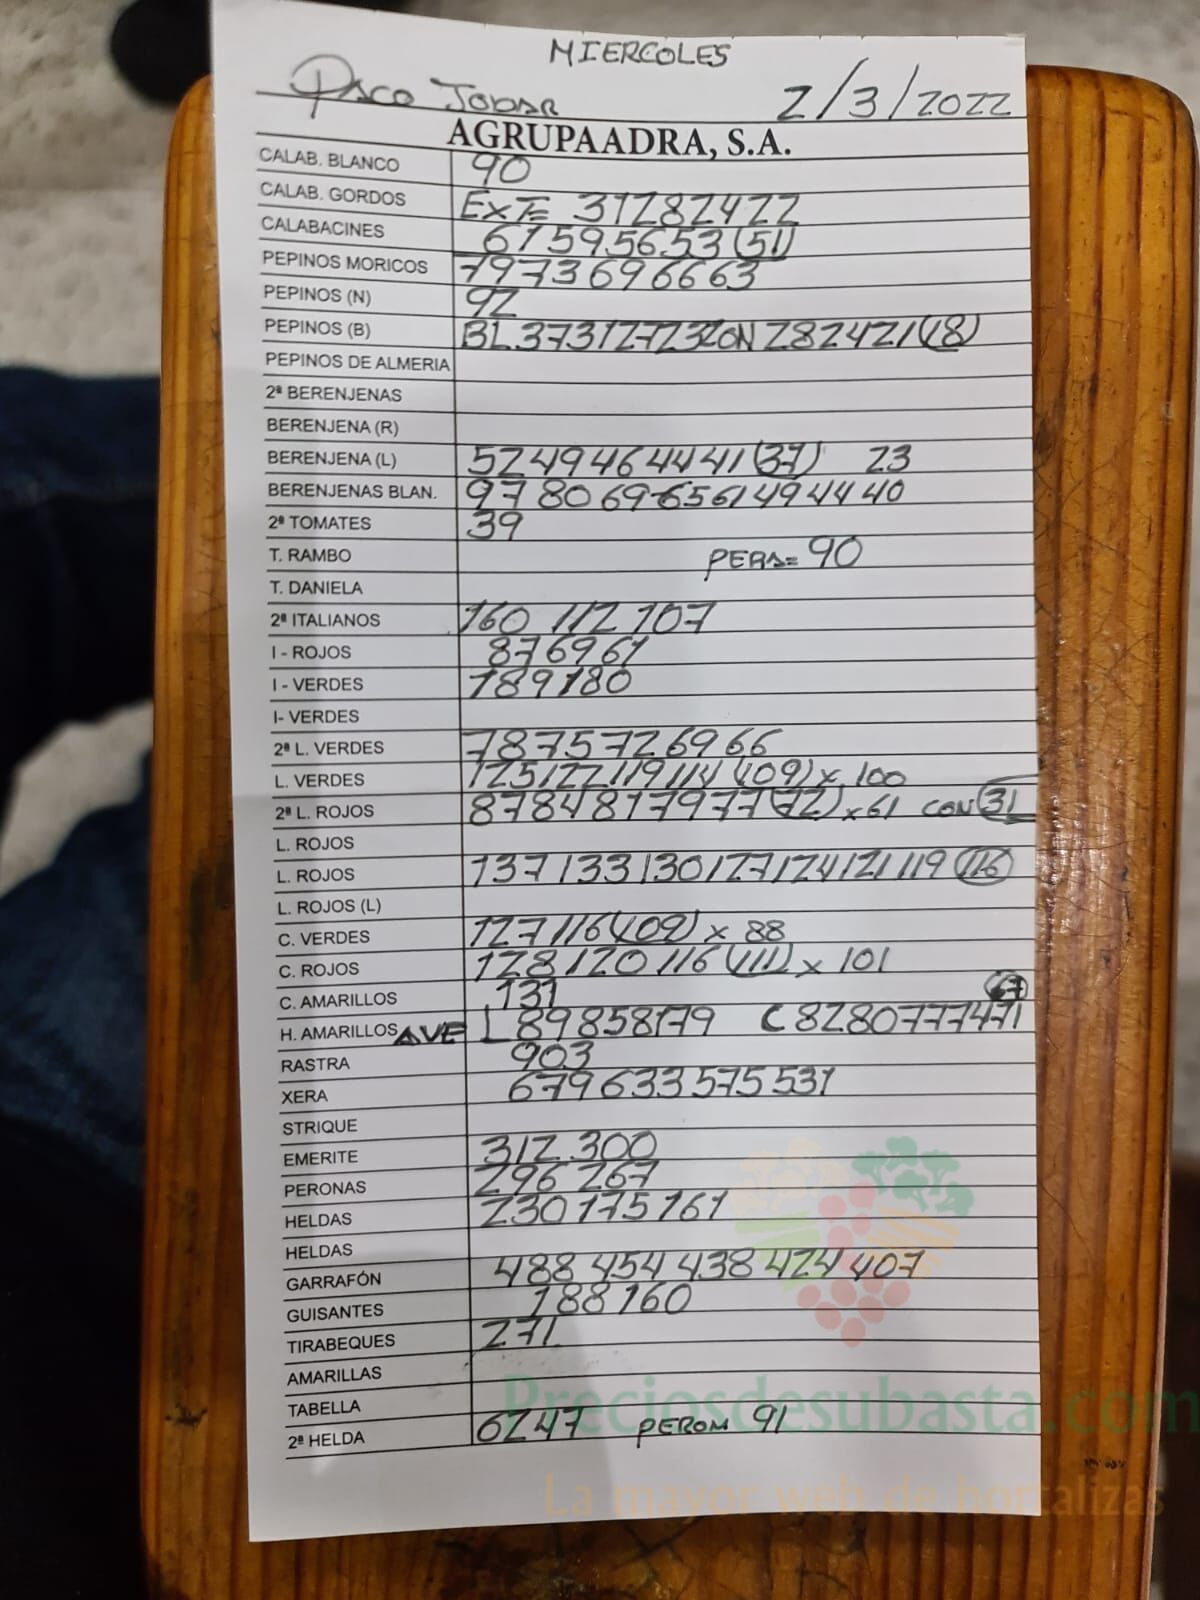 MIERCOLES
Paco Tobar 2/3/2022
AGRUPAADRA, S.A.
CALAB. BLANCO 90
CALAB. GORDOS EXT= 31282422
CALABACINES 6159565 3 (51)
PEPINOS MORICOS 7973696663
PEPINOS (N) 92
PEPINOS (B) BL.37312723 CON 282421(18)
PEPINOS DE ALMERIA
2ª BERENJENAS
BERENJENA (R)
BERENJENA (L) 5249464441(37) 23
BERENJENAS BLAN. 97 80 69-65 61 49 44 40
2ª TOMATES 39
T. RAMBO PERA= 90
T. DANIELA
2ª ITALIANOS 160 112 107
I - ROJOS 876961
I - VERDES 189180
I- VERDES
2ª L. VERDES 7875726966
L. VERDES 125122119114(109)x 100
2ª L. ROJOS 8784817977(72)x61 CON(31
L. ROJOS
L. ROJOS 137133130127124121119(116)
L. ROJOS (L)
C. VERDES 127116(109) x 88
C. ROJOS 128120116(111)x 101
C. AMARILLOS 131
67
H. AMARILLOS AVE L 89858179 C8280777471
RASTRA 903
XERA 679633575531
STRIQUE
EMERITE 312 300
PERONAS 296 267
HELDAS 230175161
HELDAS
GARRAFÓN 488 454 438 424 407
GUISANTES 188160
TIRABEQUES 271
AMARILLAS
Preciosdesubasta.com
TABELLA
2ª HELDA 6247 PERON 91
La mayor web de hortalizas